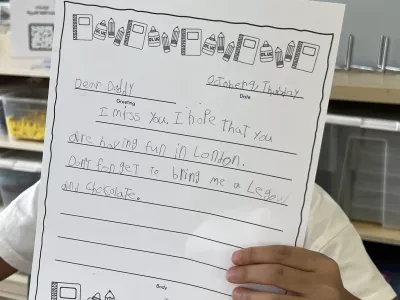 Dear Daddy October 9, Thursday
Greeting Date
I miss you. I hope that you
are having fun in London.
Don't forget to bring me a Lego
and chocolate.
Body